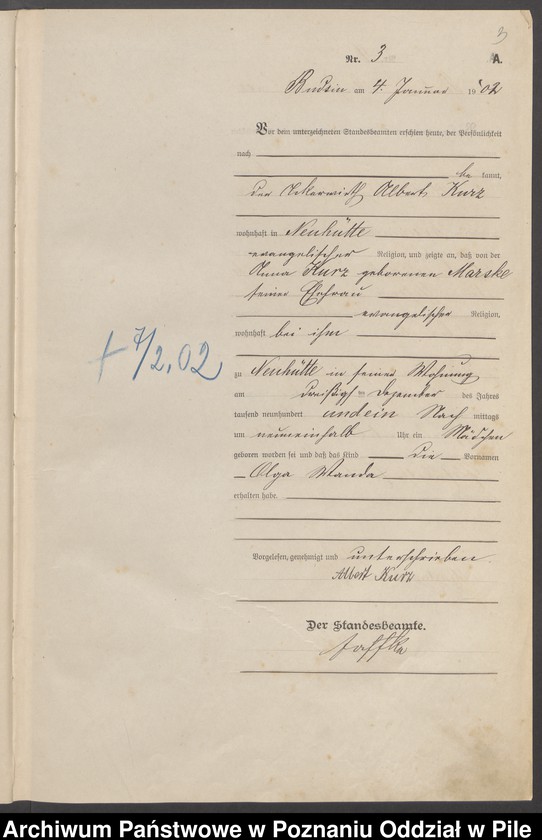 3
Nr. 3 A.
Budsin am 4. Januar 1902
Vor dem unterzeichneten Standesbeamten erschien heute, der Persönlichkeit
nach
be kannt,
der Ackerwirth Albert Kurz
wohnhaft in Neuhütte
evangelischer Religion, und zeigte an, daß von der
Anna Kurz geborenen Marske
seiner Ehefrau
evangelischer Religion,
wohnhaft bei ihm
+ 7/2. 02
zu Neuhütte in seiner Wohnung
am dreißigsten Dezember des Jahres
tausend neunhundert undein Nach mittags
um neuneinhalb Uhr ein Mädchen
geboren worden sei und daß das Kind die Vornamen
Olga Wanda
erhalten habe.
Vorgelesen, genehmigt und unterschrieben.
Albert Kurz
Der Standesbeamte.
Archiwum Państwowe w Poznaniu Oddział w Pile